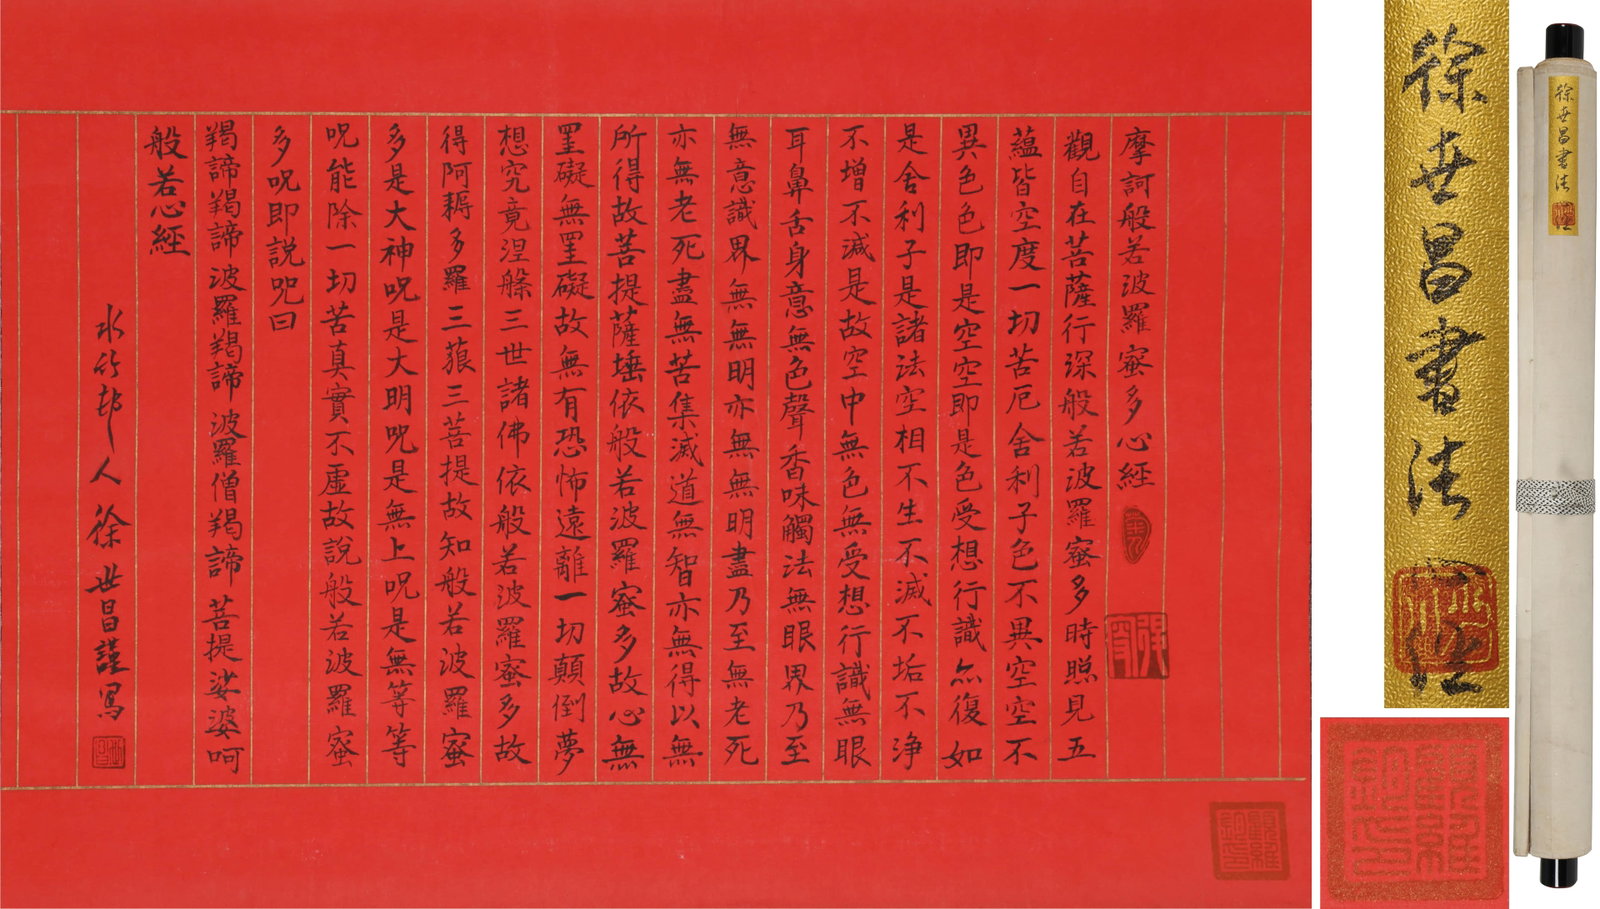 摩訶般若波羅蜜多心經
觀自在菩薩行深般若波羅蜜多時照見五
蘊皆空度一切苦厄舍利子色不異空空不
異色色即是空空即是色受想行識亦復如
是舍利子是諸法空相不生不滅不垢不淨
不增不減是故空中無色無受想行識無眼
耳鼻舌身意無色聲香味觸法無眼界乃至
無意識界無無明亦無無明盡乃至無老死
亦無老死盡無苦集滅道無智亦無得以無
所得故菩提薩埵依般若波羅蜜多故心無
罣礙無罣礙故無有恐怖遠離一切顛倒夢
想究竟涅槃三世諸佛依般若波羅蜜多故
得阿耨多羅三藐三菩提故知般若波羅蜜
多是大神咒是大明咒是無上咒是無等等
咒能除一切苦真實不虛故說般若波羅蜜
多咒即說咒曰
羯諦羯諦波羅羯諦波羅僧羯諦菩提娑婆呵
般若心經
水竹邨人徐世昌謹寫
徐世昌書法
徐世昌書法